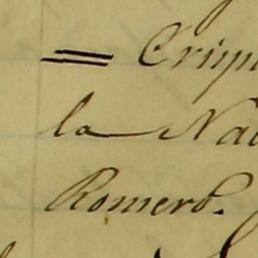 = Crisp
la Na
Romero.